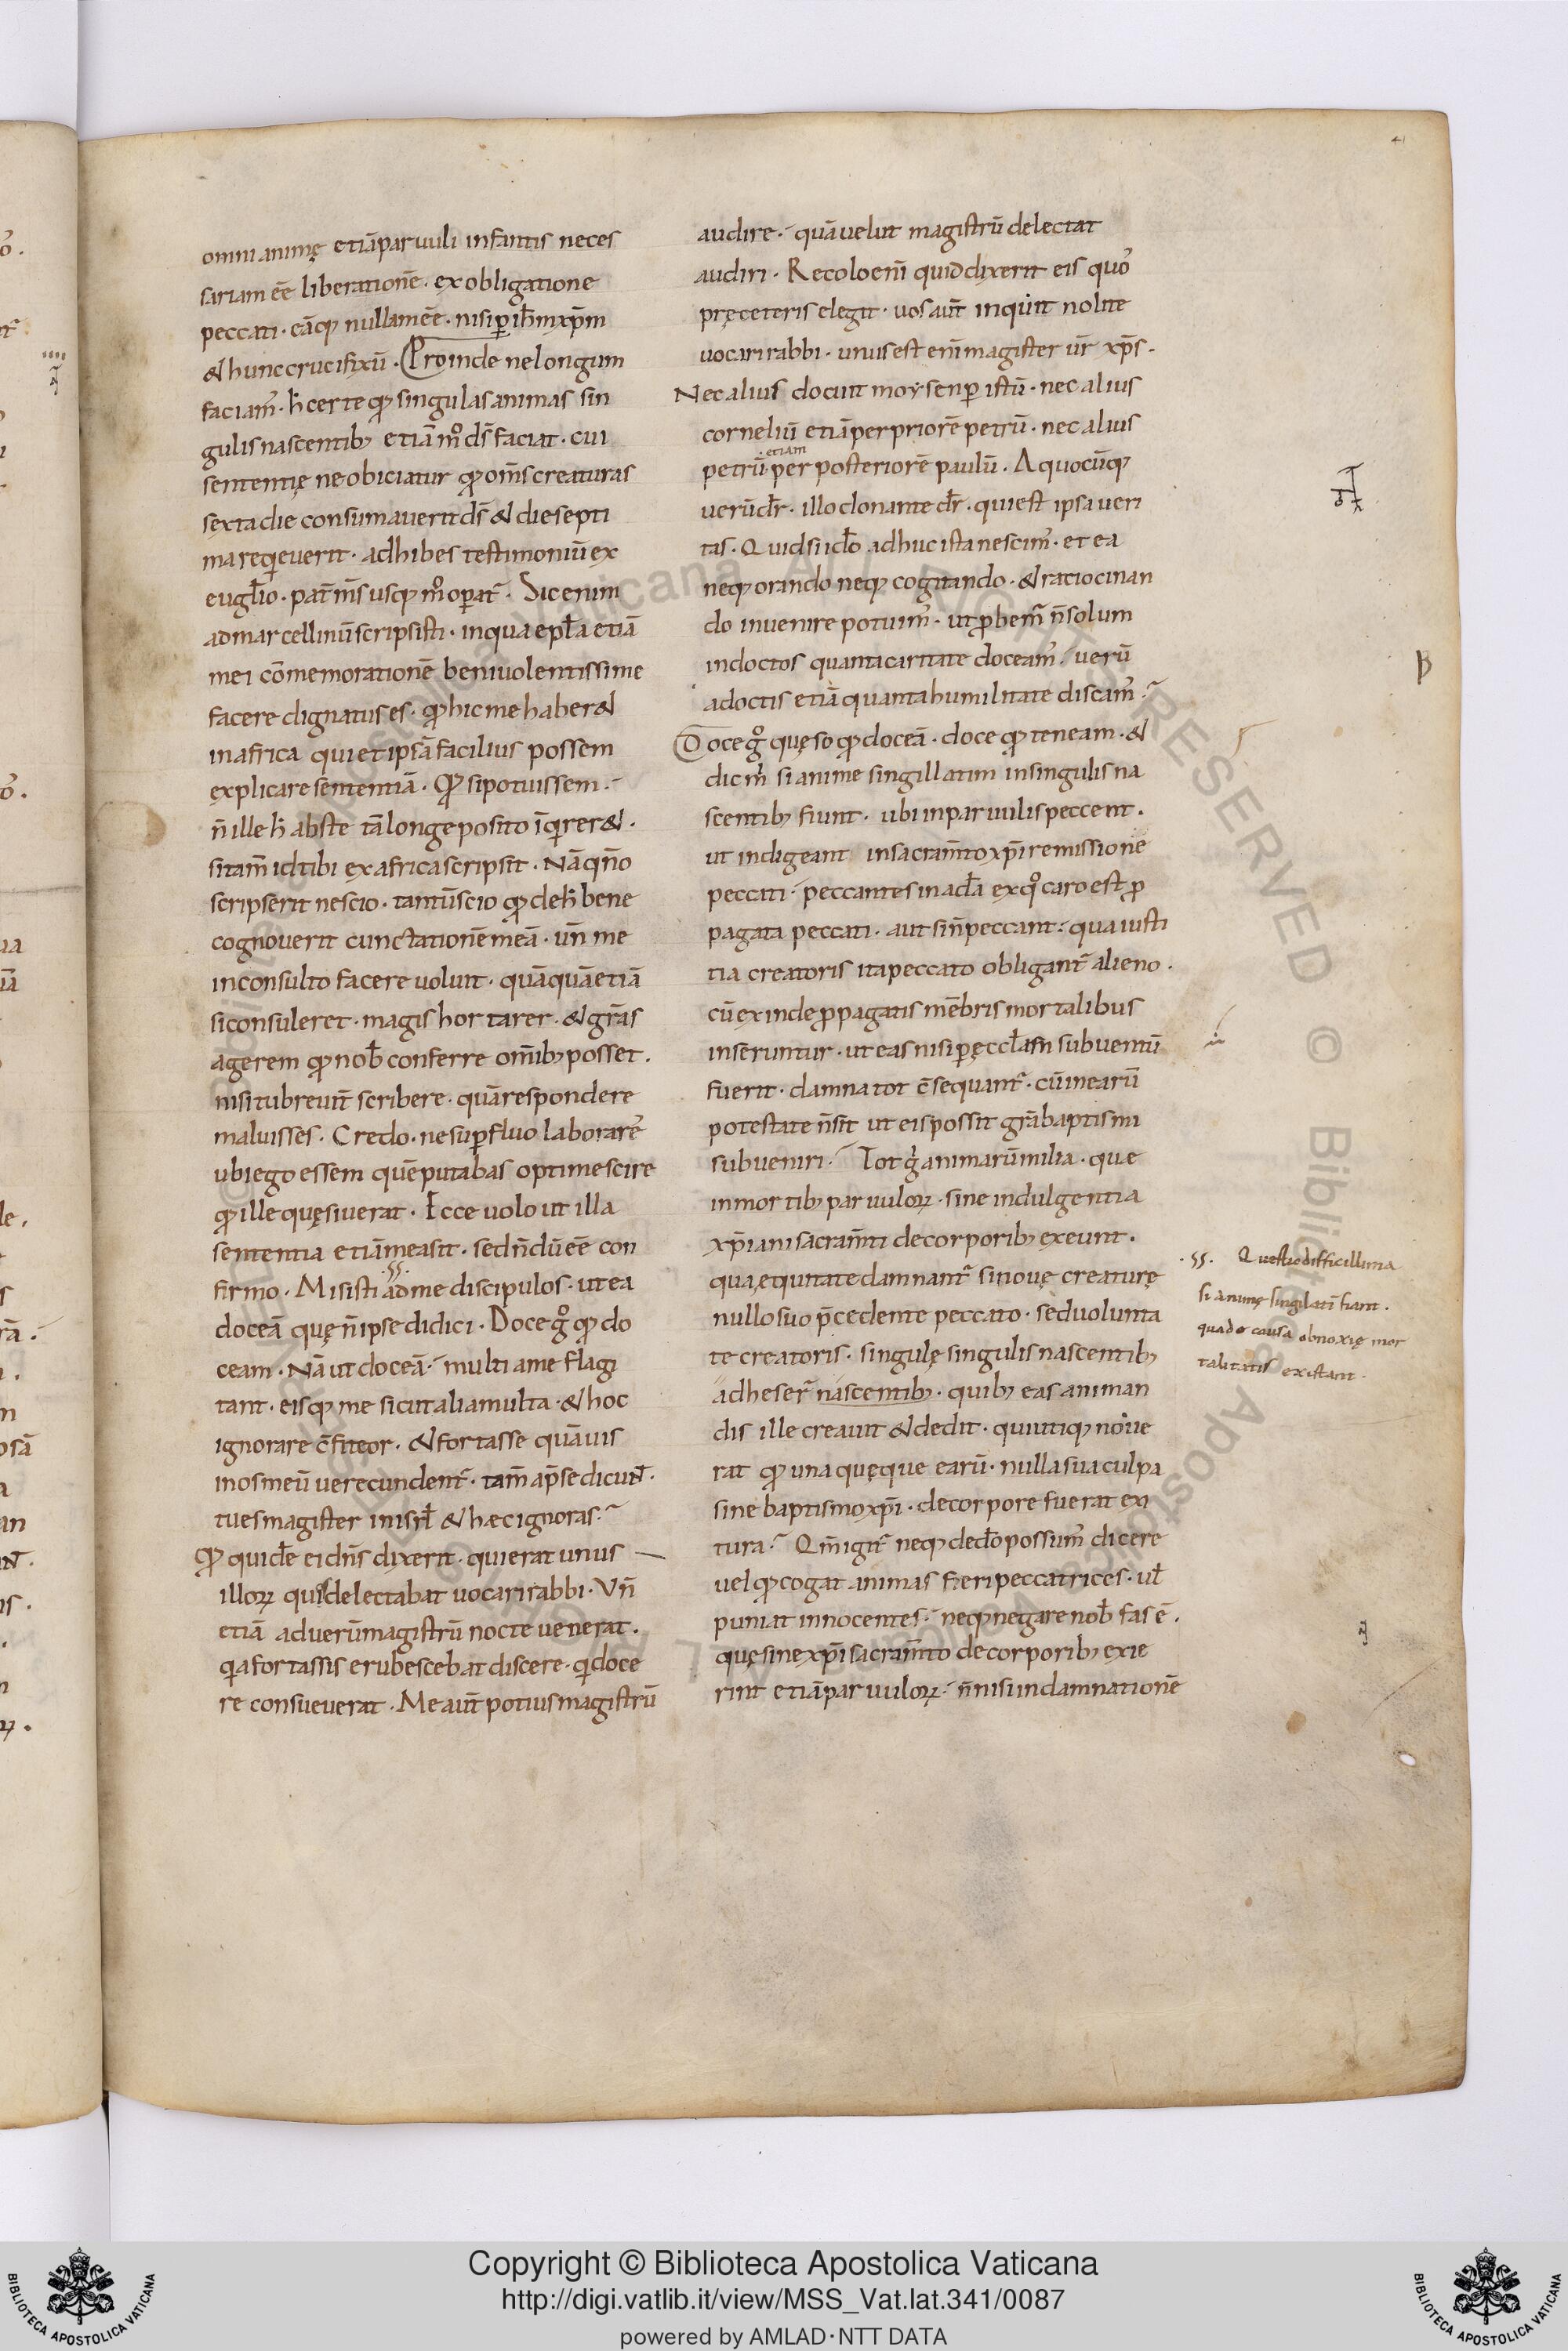 41
omni animę etiā paruuli infantis neces
sariam eē liberationē · ex obligatione
peccati · eāq; nullam eē · nisi ꝑ ih̄m xp̄m
& hunc crucifixū · Proinde ne longum
faciam᾽ · h̄ certe qđ singulas animas sin
gulis nascentib; etiā m̊ dš faciat · cui
sententię ne obiciatur qđ om̄s creaturas
sexta die consumauerit dš & die septi
ma requieuerit · adhibes testimoniū ex
euglio · pat̄ m̄s usq; m̊ oꝑat̄ · Sic enim
ad marcellinū scripsisti · in qua epła etiā
mei cōmemorationē beniuolentissime
facere dignatus es · qđ hic me haber&
in africa qui et ipsā facilius possem
explicare sententiā · Qđ si potuissem ·
n̄ ille h̄ abs te tā longe posito īqrer& ·
si tam̄ id tibi ex africa scripsit · Nā qn̄o
scripserit nescio · tantū scio qđ de h̄ bene
cognouerit cunctationē meā · un̄ me
inconsulto facere uoluit · quāquā etiā
si consuleret · magis hortarer · & gr̄as
agerem qđ nob̄ conferre om̄ib; posset ·
nisi tu breuit̄ scribere · quā respondere
maluisses · Credo · ne suꝑfluo laborares᾽
ubi ego essem quē putabas optime scire
qđ ille quęsiuerat · Ecce uolo ut illa
sententia etiā mea sit · sed n̄dū eē con
firmo · Misisti ad me discipulos · ut ea
·ss·
doceā quę n̄ ipse didici · Doce g̊ qđ do
ceam · Nā ut doceā · multi a me flagi
tant · eisq; me sicut alia multa · & hoc
ignorare c̄fiteor · & fortasse quāuis
in os meū uerecundent᾽ · tam̄ ap̄ se dicunt ·
tu es magister in isrł & hæc ignoras ·
Qđ quidē ei dn̄s dixerit · qui erat unus
illoꝝ quos delectabat uocari rabbi · Vn̄
etiā ad uerū magistrū nocte uenerat ·
qa fortassis erubescebat discere · qi doce
re consueuerat · Me aut̄ potius magistrū
audire · quā uelut magistrū delectat
audiri · Recolo eni᾽ quid dixerit eis quos᾽
pręceteris elegit · uos aut̄ inquit nolite
uocari rabbi · unus est eni᾽ magister ur̄ xp̄s ·
Nec alius docuit moysen ꝑ istū · nec alius
corneliū etiā per priorē petrū · nec alius
etiam
petrū per posteriorē paulū · A quocūq;
uerū dr̄ · illo donante dr̄ · qui est ipsa ueri
tas · Quid si ideo adhuc ista nescim᾽ · et ea
neq; orando neq; cogitando · & ratiocinan
do inuenire potuim᾽ · ut probem᾽ n̄ solum
indoctos quanta caritate doceam᾽ · uerū
a doctis etiā quanta humilitate discam᾽ ·
Doce g̊ quęso qđ doceā · doce qđ teneam · &
dic m̄ si anime singillatim in singulis na
scentib; fiunt · ubi in paruulis peccent ·
ut indigeant in sacram̄to xp̄i remissione
peccati · peccantes in adā ex q̊ caro est p̄
pagata peccati · aut si n̄ peccant · qua iusti
tia creatoris ita peccato obligant᾽ alieno ·
cū ex inde propagatis mēbris mortalibus
inseruntur · ut eas nisi ꝑ ęccłam subuentū
fuerit · damnatot c̄sequant᾽ · cū in earū
potestate n̄ sit ut eis possit gr̄a baptismi
subueniri · Tot g̊ animarū milia · que
in mortib; paruuloꝝ · sine indulgentia
xp̄iani sacram̄ti de corporib; exeunt ·
qua ęquitate damnant᾽ si nouę creaturę
nullo suo p̄cedente peccato · sed uolunta
te creatoris · singulę singulis nascentib;
adheser᾽ nascentib; · quib; eas animan
dis ille creauit & dedit · qui utiq; noue
rat qđ una quęque earū · nulla sua culpa
sine baptismo xp̄i · de corpore fuerat exi
tura · Qm̄ igit᾽ neq; de dō possum᾽ dicere
uel qđ cogat animas fieri peccatrices · ul̄
puniat innocentes · neq; negare nob̄ fas ē ·
quę sine xp̄i sacram̄to de corporib; exie
rint etiā paruuloꝝ · n̄ nisi in damnationē
·ss· Questio difficillima
si animę singilati᾽ fiant ·
qua de causa obnoxię mor
talitatis existant ·
Copyright © Biblioteca Apostolica Vaticana
http://digi.vatlib.it/view/MSS_Vat.lat.341/0087
powered by AMLAD·NTT DATA
BIBLIOTECA APOSTOLICA VATICANA
BIBLIOTECA APOSTOLICA VATICANA